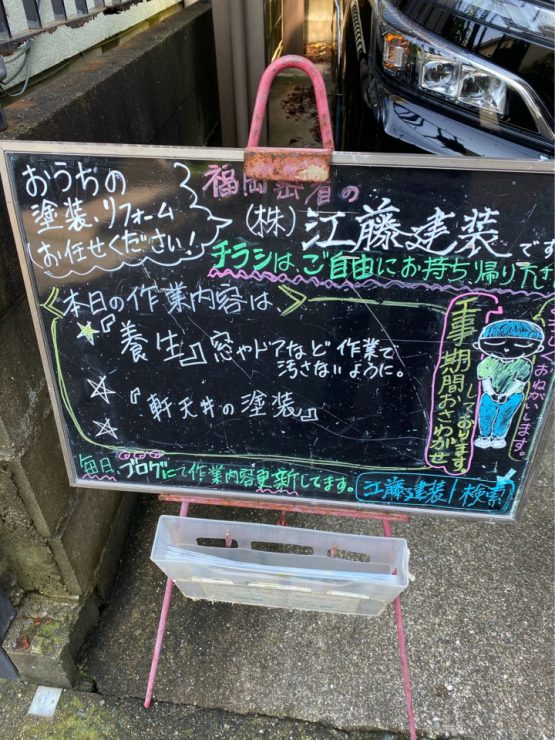 おうちの
塗装、リフォーム
お任せください！
福岡密着の
(株)江藤建装です
チラシは、ご自由にお持ち帰り下さ
本日の作業内容は、
『養生』窓やドアなど作業で
汚さないように。
『軒天井の塗装』
工事期間おさわがせ
しております。
おねがいします。
毎日ブログにて作業内容更新してます。
江藤建装 検索